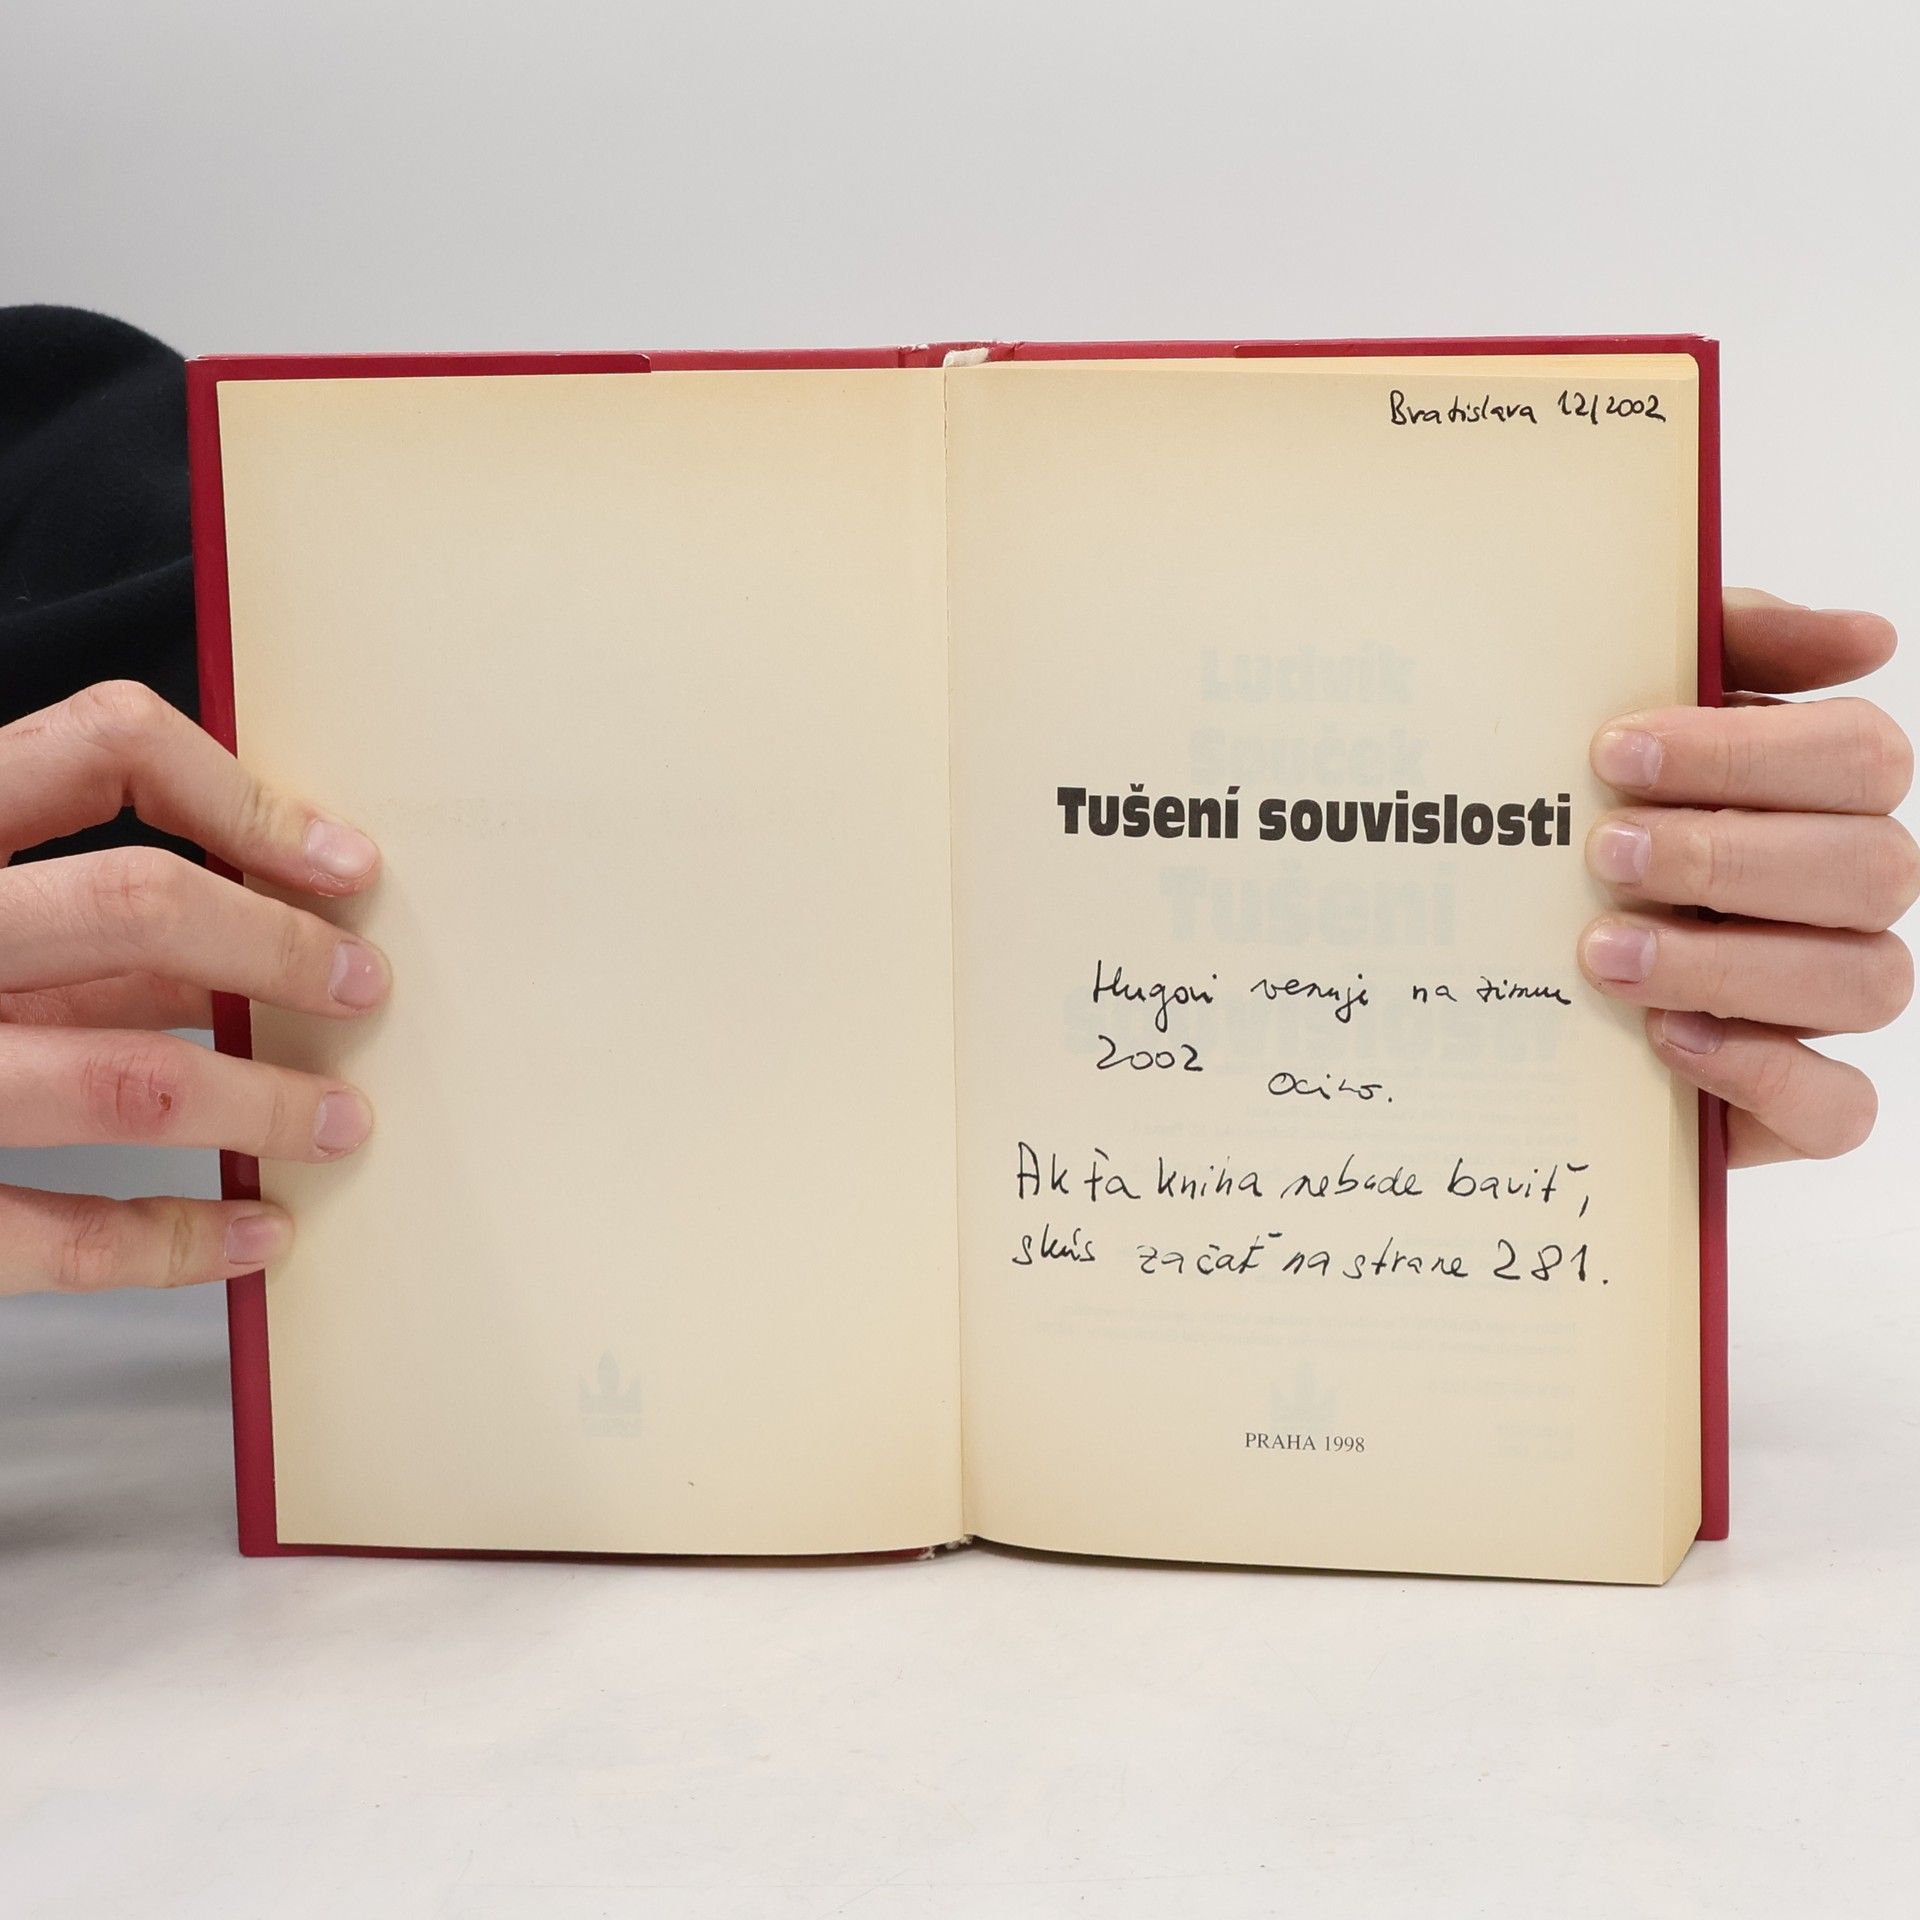 Bratislava 12/2002
Ludvík
Souček
Tušení souvislosti
Tušení
souvislosti
Hugovi venuje na zimu
2002
Ocino.
Ak ťa kniha nebude baviť,
skús začať na strane 281.
PRAHA 1998